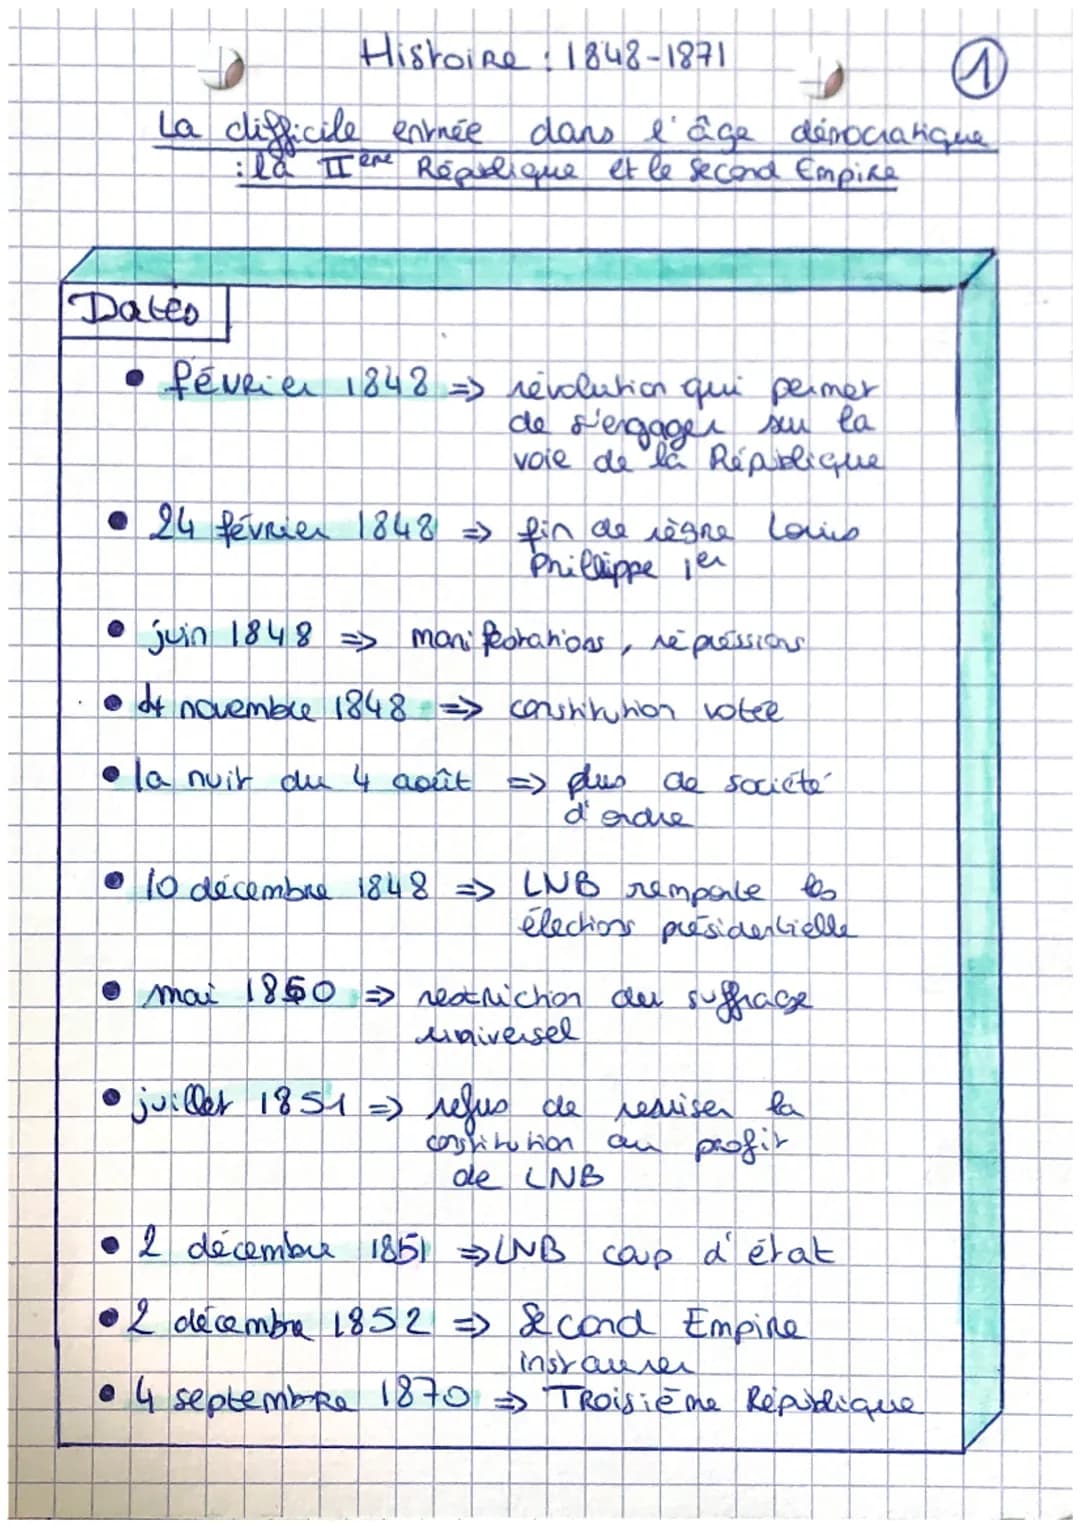 Histoire : 1848-1871
1
La difficile entrée dans l'âge démocratique
: la IIère République et le Second Empire
Dates
• février 1848 => révolution qui permet
de s'engager sur la
voie de la République
• 24 février 1848 => fin de règne Louis
Phillippe 1er
• juin 1848 => manifestations, répressions
• 4 novembre 1848 => constitution votée
• la nuit du 4 août => plus de société
d'ordre
• 10 décembre 1848 => LNB remporte les
élections présidentielle
• mai 1850 => restriction du suffrage
universel
• juillet 1851 => refus de reviser la
constitution au profit
de LNB
• 2 décembre 1851 => LNB coup d'état
• 2 décembre 1852 => Second Empire
instaurer
• 4 septembre 1870 => Troisième République